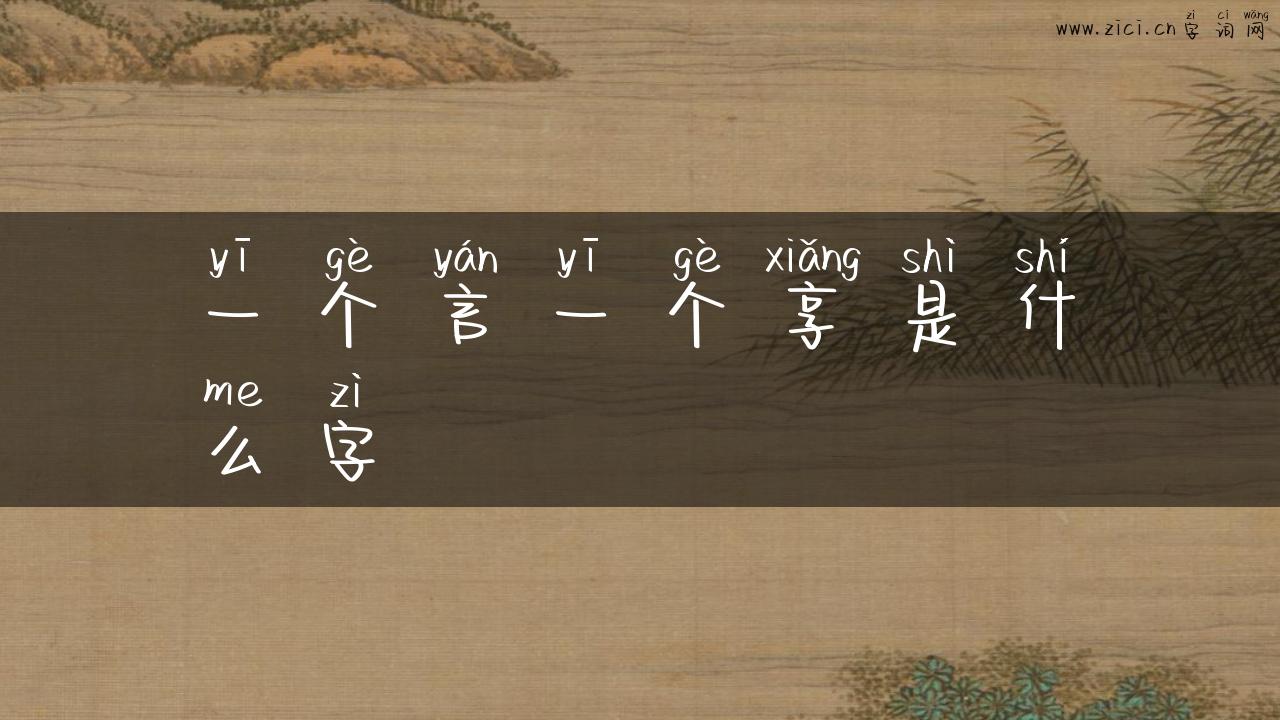 www.zici.cn 字词网
zì cí wǎng
yī gè yán yī gè xiǎng shì shí
一个言一个享是什
me zì
么字